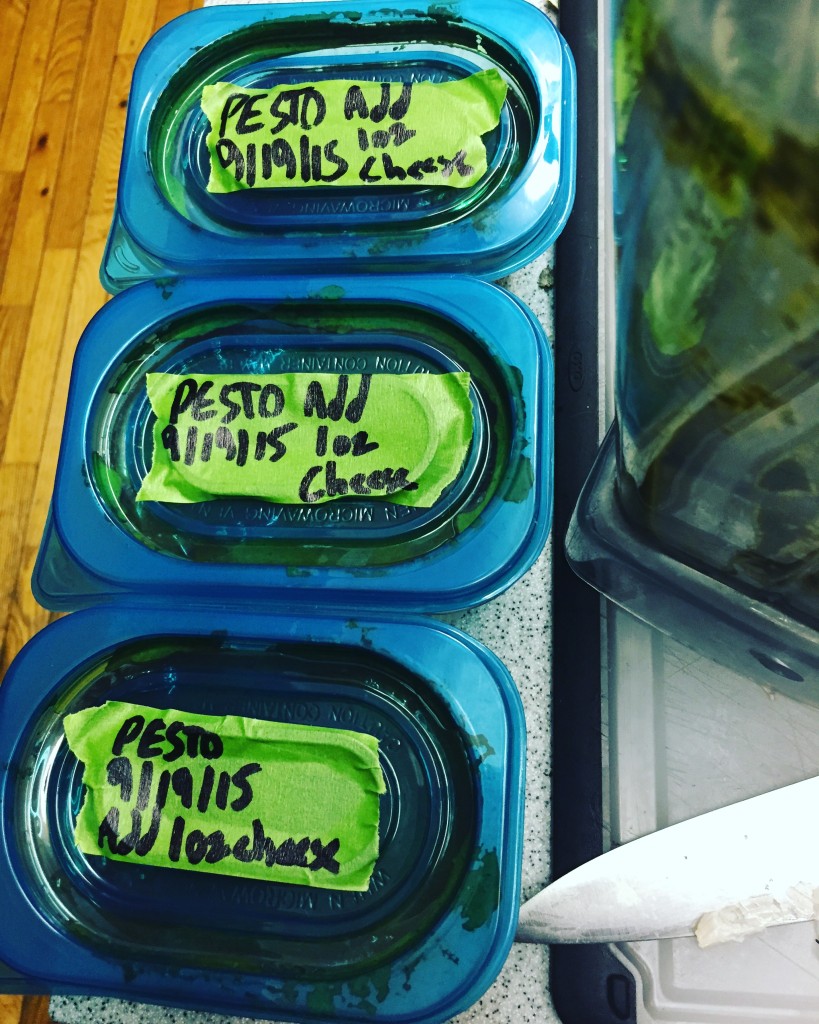 PESTO Add
9/19/15 1oz
cheese
MICROWAVING
PESTO Add
9/19/15 1oz
Cheese
CONTAINER
MICROWAVING
PESTO
9/19/15
Add 1oz cheese